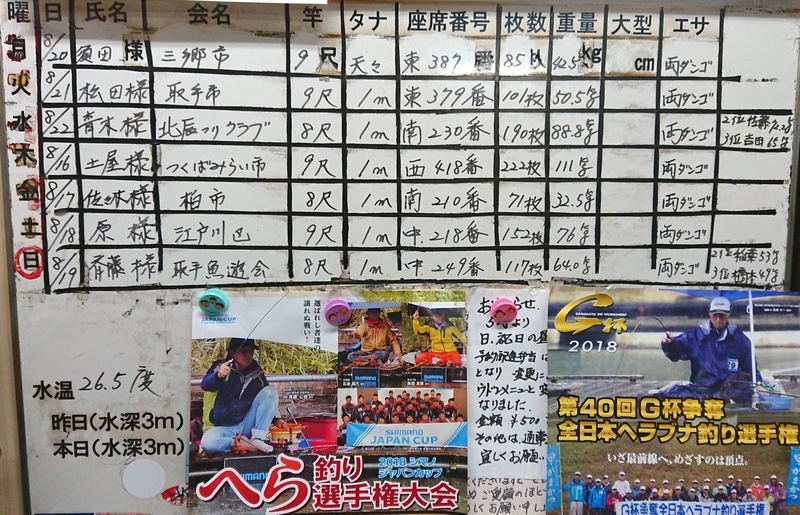 曜 日 氏名 会名 竿 タナ 座席番号 枚数 重量 大型 エサ
月 8/20 須田様 三郷市 9尺 天々 東387番 85枚 42.5kg cm 両ダンゴ
火 8/21 松田様 取手市 9尺 1m 東379番 101枚 50.5kg 両ダンゴ
水 8/22 青木様 北辰つりクラブ 8尺 1m 南230番 190枚 88.8kg 両ダンゴ
2位佐藤
3位吉田65kg
木 8/16 土屋様 つくばみらい市 9尺 1m 西418番 222枚 111kg 両ダンゴ
金 8/17 佐々木様 柏市 8尺 1m 南210番 71枚 32.5kg 両ダンゴ
土 8/18 原様 江戸川区 9尺 1m 中218番 152枚 76kg 両ダンゴ
日 8/19 斉藤様 取手魚遊会 8尺 1m 中249番 117枚 64.0kg 両ダンゴ
2位稲葉53kg
3位橋本49kg
水温 26.5度
昨日(水深3m)
本日(水深3m)
JAPAN CUP
選ばれし者達の
譲れぬ戦い!
SHIMANO
JAPAN CUP
SHIMANO
へら釣り
選手権大会
2018 シマノ
ジャパンカップ
おしらせ
となり 変更に
なりました。
金額 ¥500
その他は、通常
宜しくお願い
G杯
GAMAKATSU BIG TOURNAMENT
2018
29
第40回G杯争奪
全日本ヘラブナ釣り選手権
いざ最前線へ、めざすのは頂点。
がまかつ
G杯争奪全日本ヘラブナ釣り選手権